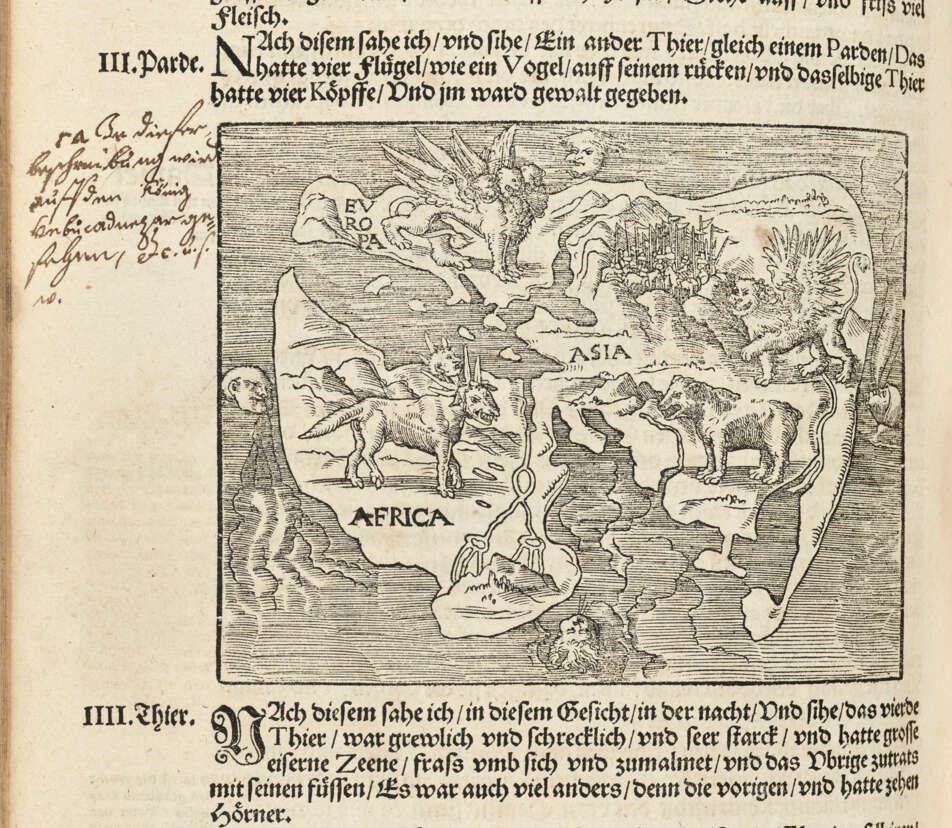 Fleisch.
III. Parde.
NAch disem sahe ich / vnd sihe / Ein ander Thier / gleich einem Parden / Das
hatte vier Flügel / wie ein Vogel / auff seinem rücken / vnd dasselbige Thier
hatte vier Köpffe / Vnd jm ward gewalt gegeben.
In dieser
beschreibung wird
auff den König
Nebucadnezar ge=
sehen, &c. u. s.
w.
EV
RO
PA
ASIA
AFRICA
IIII. Thier.
NAch diesem sahe ich / in diesem Gesicht / in der nacht / Vnd sihe / das vierde
Thier / war grewlich vnd schrecklich / vnd seer starck / vnd hatte grosse
eiserne Zeene / frass vmb sich vnd zumalmet / vnd das Vbrige zutrats
mit seinen füssen / Es war auch viel anders / denn die vorigen / vnd hatte zehen
Hörner.